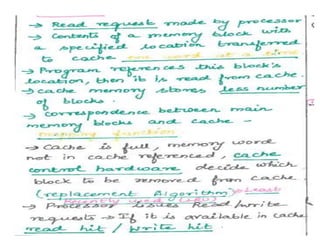 → Read request made by processor
→ Contents of a memory block with
a specified location transferred
to cache one word at a time
→ Program references this block's
location, then it is read from cache.
→ Cache memory stores less number
of blocks.
→ Correspondence between main
memory blocks and cache -
mapping function
→ Cache is full, memory word
not in cache referenced, cache
control hardware decide which
block to be removed from cache
(replacement Algorithm) → Least
Recently used (LRU)
→ Processor issues Read/Write
requests → If it is available in cache
read hit / write hit.